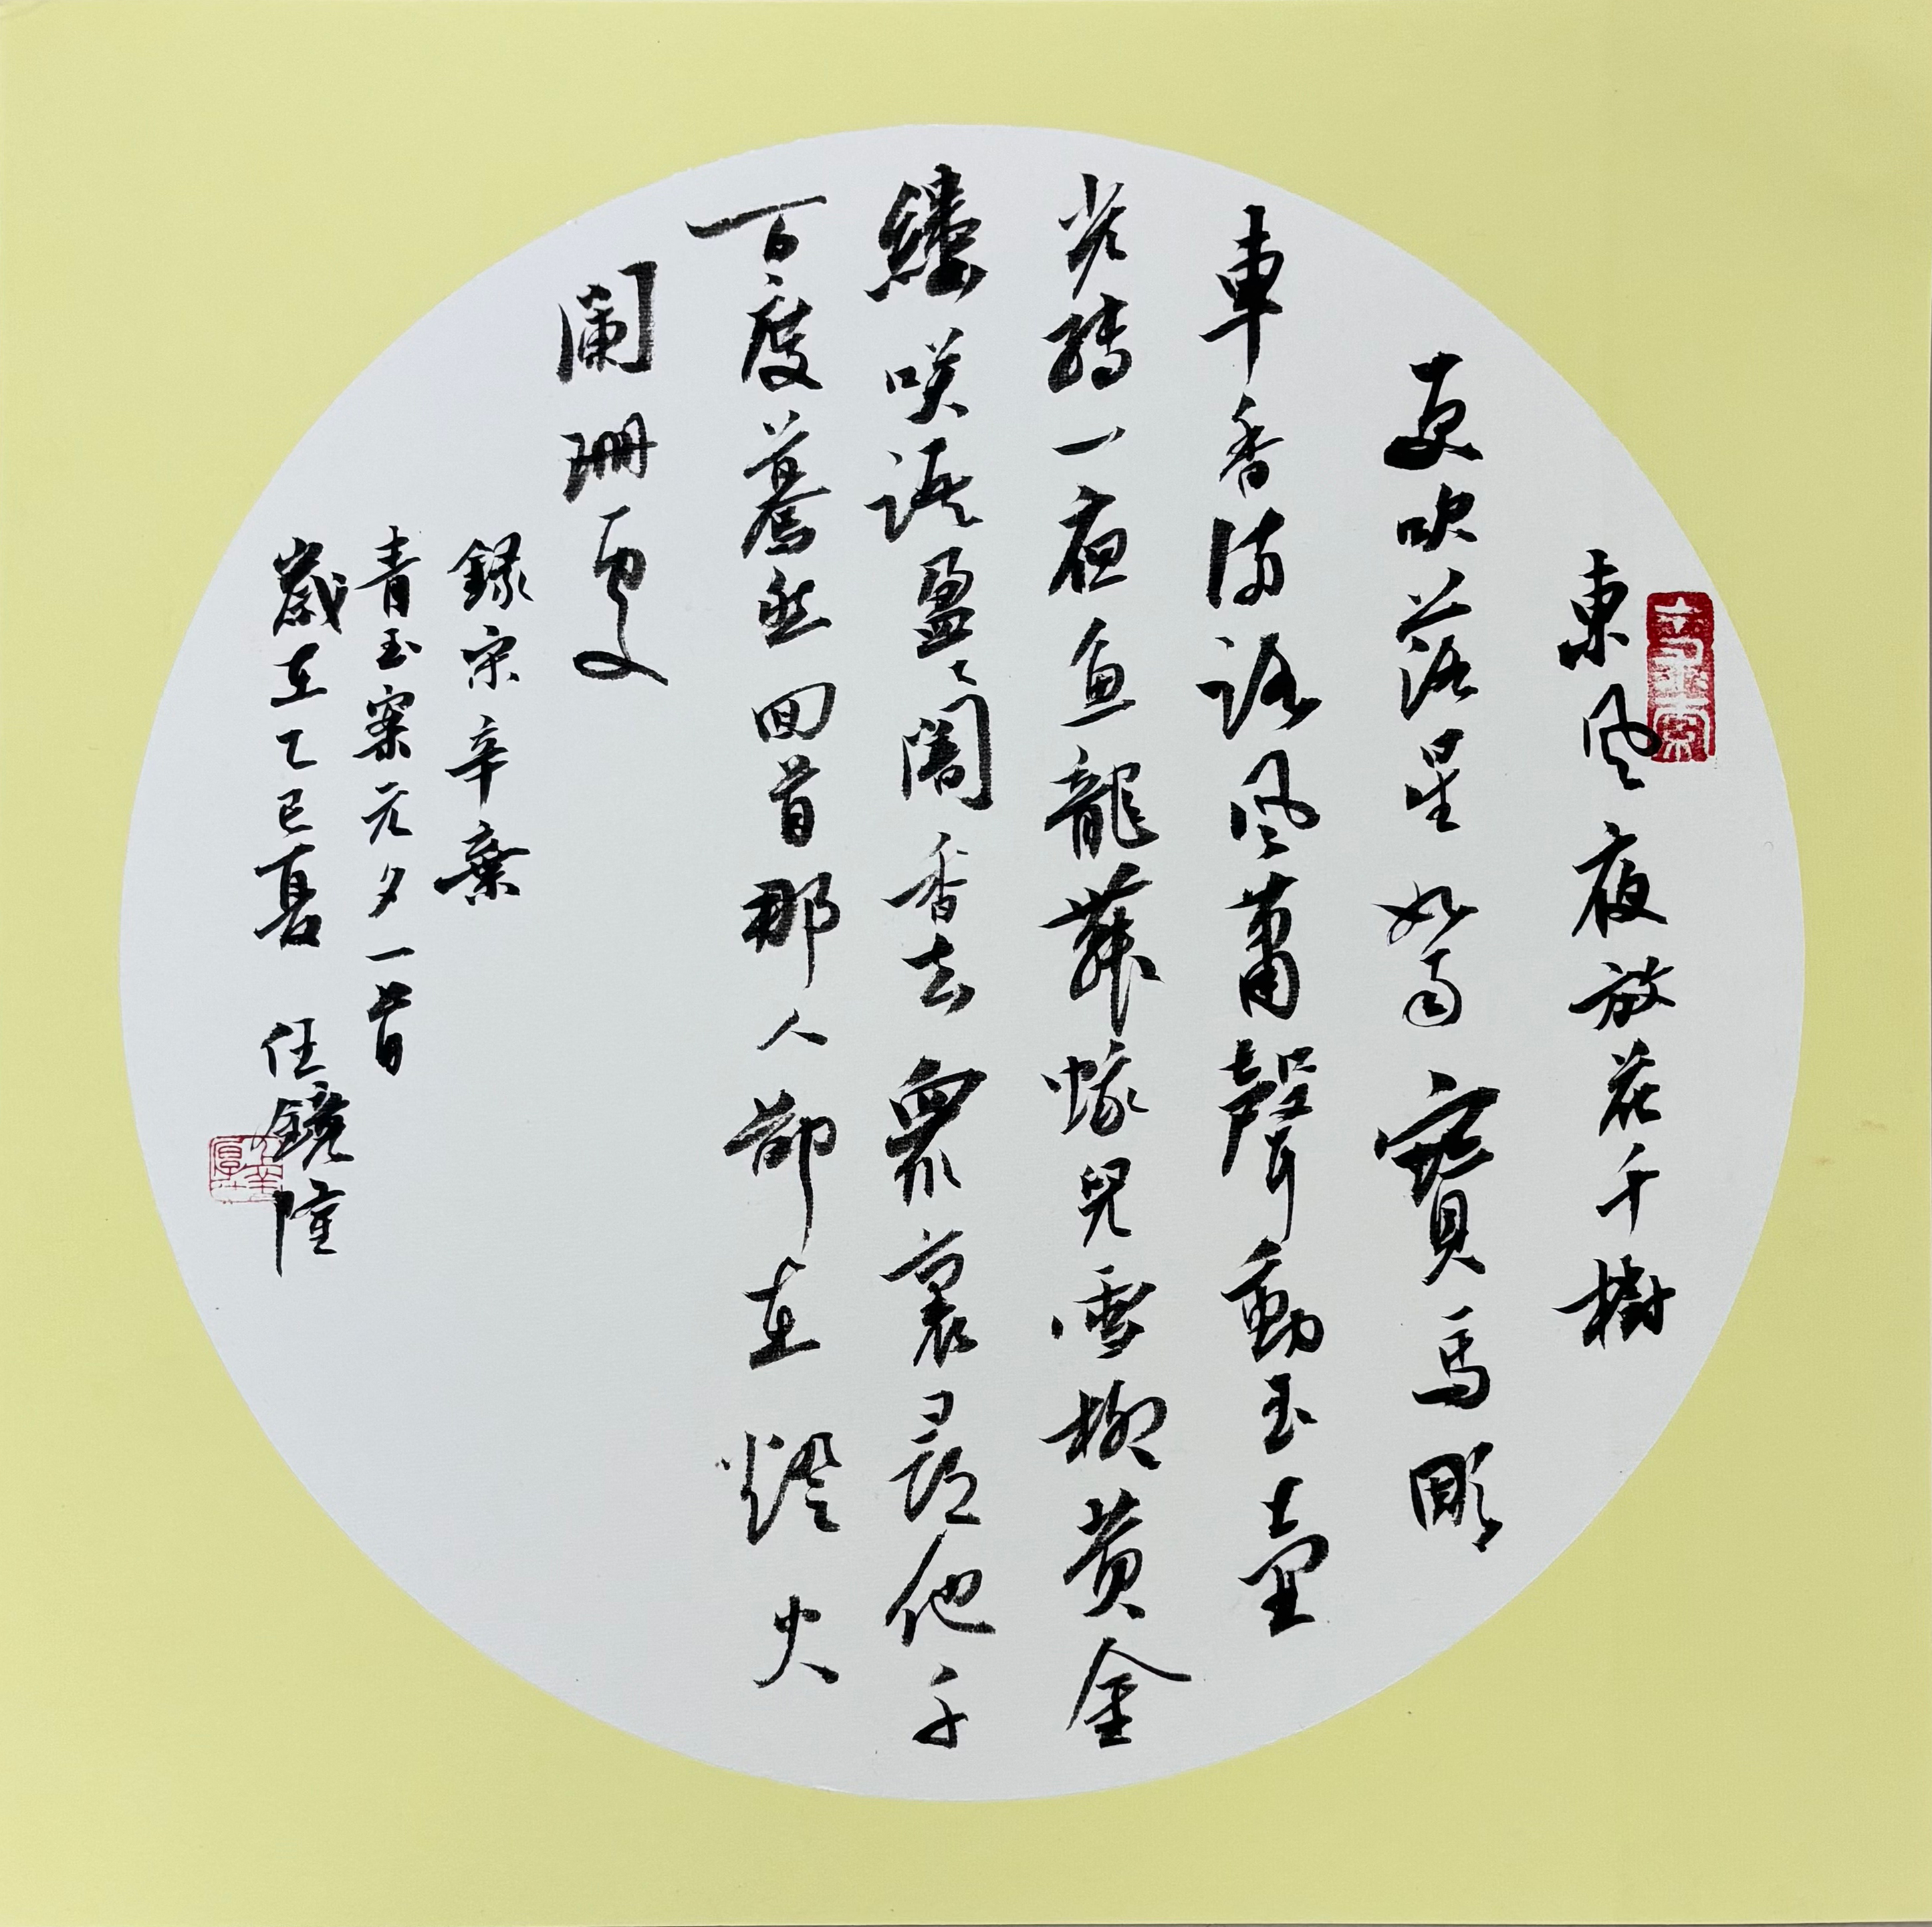 東風夜放花千樹
更吹落星如雨寶馬彫
車香滿路風蕭聲動玉壺
光轉一夜魚龍舞蛾兒雪柳黃金
縷咲語盈〻闇香去衆裏尋他千
百度驀然囬首那人卻在燈火
闌珊處
錄宋辛棄
青玉案元夕一首
歲在乙巳夏 任鏡